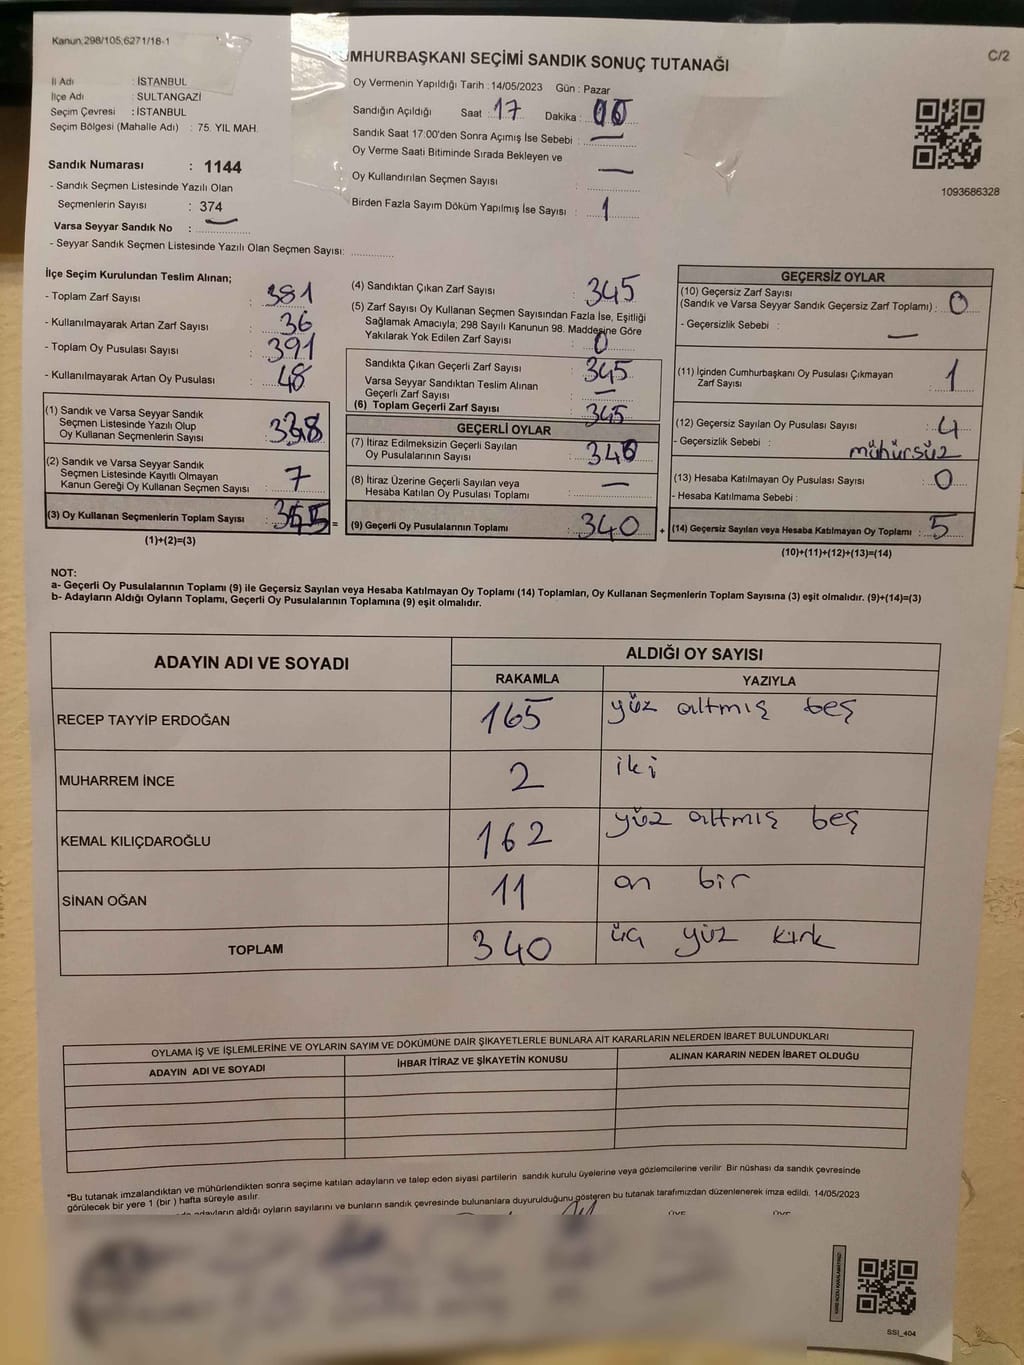 Kanun:298/105;6271/18-1
C/2
UMHURBAŞKANI SEÇİMİ SANDIK SONUÇ TUTANAĞI
İl Adı : İSTANBUL
İlçe Adı : SULTANGAZİ
Seçim Çevresi : İSTANBUL
Seçim Bölgesi (Mahalle Adı) : 75. YIL MAH.
Oy Vermenin Yapıldığı Tarih : 14/05/2023 Gün : Pazar
Sandığın Açıldığı Saat : 17 Dakika :
Sandık Saat 17:00'den Sonra Açımış İse Sebebi : —
Oy Verme Saati Bitiminde Sırada Bekleyen ve
Oy Kullandırılan Seçmen Sayısı : —
Birden Fazla Sayım Döküm Yapılmış İse Sayısı : 1
1093686328
Sandık Numarası : 1144
- Sandık Seçmen Listesinde Yazılı Olan
Seçmenlerin Sayısı : 374
Varsa Seyyar Sandık No : —
- Seyyar Sandık Seçmen Listesinde Yazılı Olan Seçmen Sayısı:
İlçe Seçim Kurulundan Teslim Alınan;
- Toplam Zarf Sayısı : 381
- Kullanılmayarak Artan Zarf Sayısı : 36
- Toplam Oy Pusulası Sayısı : 391
- Kullanılmayarak Artan Oy Pusulası : 48
(1) Sandık ve Varsa Seyyar Sandık
Seçmen Listesinde Yazılı Olup
Oy Kullanan Seçmenlerin Sayısı : 338
(2) Sandık ve Varsa Seyyar Sandık
Seçmen Listesinde Kayıtlı Olmayan
Kanun Gereği Oy Kullanan Seçmen Sayısı : 7
(3) Oy Kullanan Seçmenlerin Toplam Sayısı : 345 =
(1)+(2)=(3)
(4) Sandıktan Çıkan Zarf Sayısı : 345
(5) Zarf Sayısı Oy Kullanan Seçmen Sayısından Fazla İse, Eşitliği
Sağlamak Amacıyla; 298 Sayılı Kanunun 98. Maddesine Göre
Yakılarak Yok Edilen Zarf Sayısı : 0
Sandıkta Çıkan Geçerli Zarf Sayısı : 345
Varsa Seyyar Sandıktan Teslim Alınan
Geçerli Zarf Sayısı : —
(6) Toplam Geçerli Zarf Sayısı : 345
GEÇERLİ OYLAR
(7) İtiraz Edilmeksizin Geçerli Sayılan
Oy Pusulalarının Sayısı : 340
(8) İtiraz Üzerine Geçerli Sayılan veya
Hesaba Katılan Oy Pusulası Toplamı : —
(9) Geçerli Oy Pusulalarının Toplamı : 340 +
GEÇERSİZ OYLAR
(10) Geçersiz Zarf Sayısı
(Sandık ve Varsa Seyyar Sandık Geçersiz Zarf Toplamı) : 0
- Geçersizlik Sebebi : —
(11) İçinden Cumhurbaşkanı Oy Pusulası Çıkmayan
Zarf Sayısı : 1
(12) Geçersiz Sayılan Oy Pusulası Sayısı : 4
- Geçersizlik Sebebi : mühürsüz
(13) Hesaba Katılmayan Oy Pusulası Sayısı : 0
- Hesaba Katılmama Sebebi :
(14) Geçersiz Sayılan veya Hesaba Katılmayan Oy Toplamı : 5
(10)+(11)+(12)+(13)=(14)
NOT:
a- Geçerli Oy Pusulalarının Toplamı (9) ile Geçersiz Sayılan veya Hesaba Katılmayan Oy Toplamı (14) Toplamları, Oy Kullanan Seçmenlerin Toplam Sayısına (3) eşit olmalıdır. (9)+(14)=(3)
b- Adayların Aldığı Oyların Toplamı, Geçerli Oy Pusulalarının Toplamına (9) eşit olmalıdır.
ADAYIN ADI VE SOYADI
ALDIĞI OY SAYISI
RAKAMLA YAZIYLA
RECEP TAYYİP ERDOĞAN 165 yüz altmış beş
MUHARREM İNCE 2 iki
KEMAL KILIÇDAROĞLU 162 yüz altmış beş
SİNAN OĞAN 11 on bir
TOPLAM 340 üç yüz kırk
OYLAMA İŞ VE İŞLEMLERİNE VE OYLARIN SAYIM VE DÖKÜMÜNE DAİR ŞİKAYETLERLE BUNLARA AİT KARARLARIN NELERDEN İBARET BULUNDUKLARI
ADAYIN ADI VE SOYADI İHBAR İTİRAZ VE ŞİKAYETİN KONUSU ALINAN KARARIN NEDEN İBARET OLDUĞU
*Bu tutanak imzalandıktan ve mühürlendikten sonra seçime katılan adayların ve talep eden siyasi partilerin sandık kurulu üyelerine veya gözlemcilerine verilir. Bir nüshası da sandık çevresinde
görülecek bir yere 1 (bir ) hafta süreyle asılır.
adayların aldığı oyların sayılarını ve bunların sandık çevresinde bulunanlara duyurulduğunu gösteren bu tutanak tarafımızdan düzenlenerek imza edildi. 14/05/2023
SSI_404